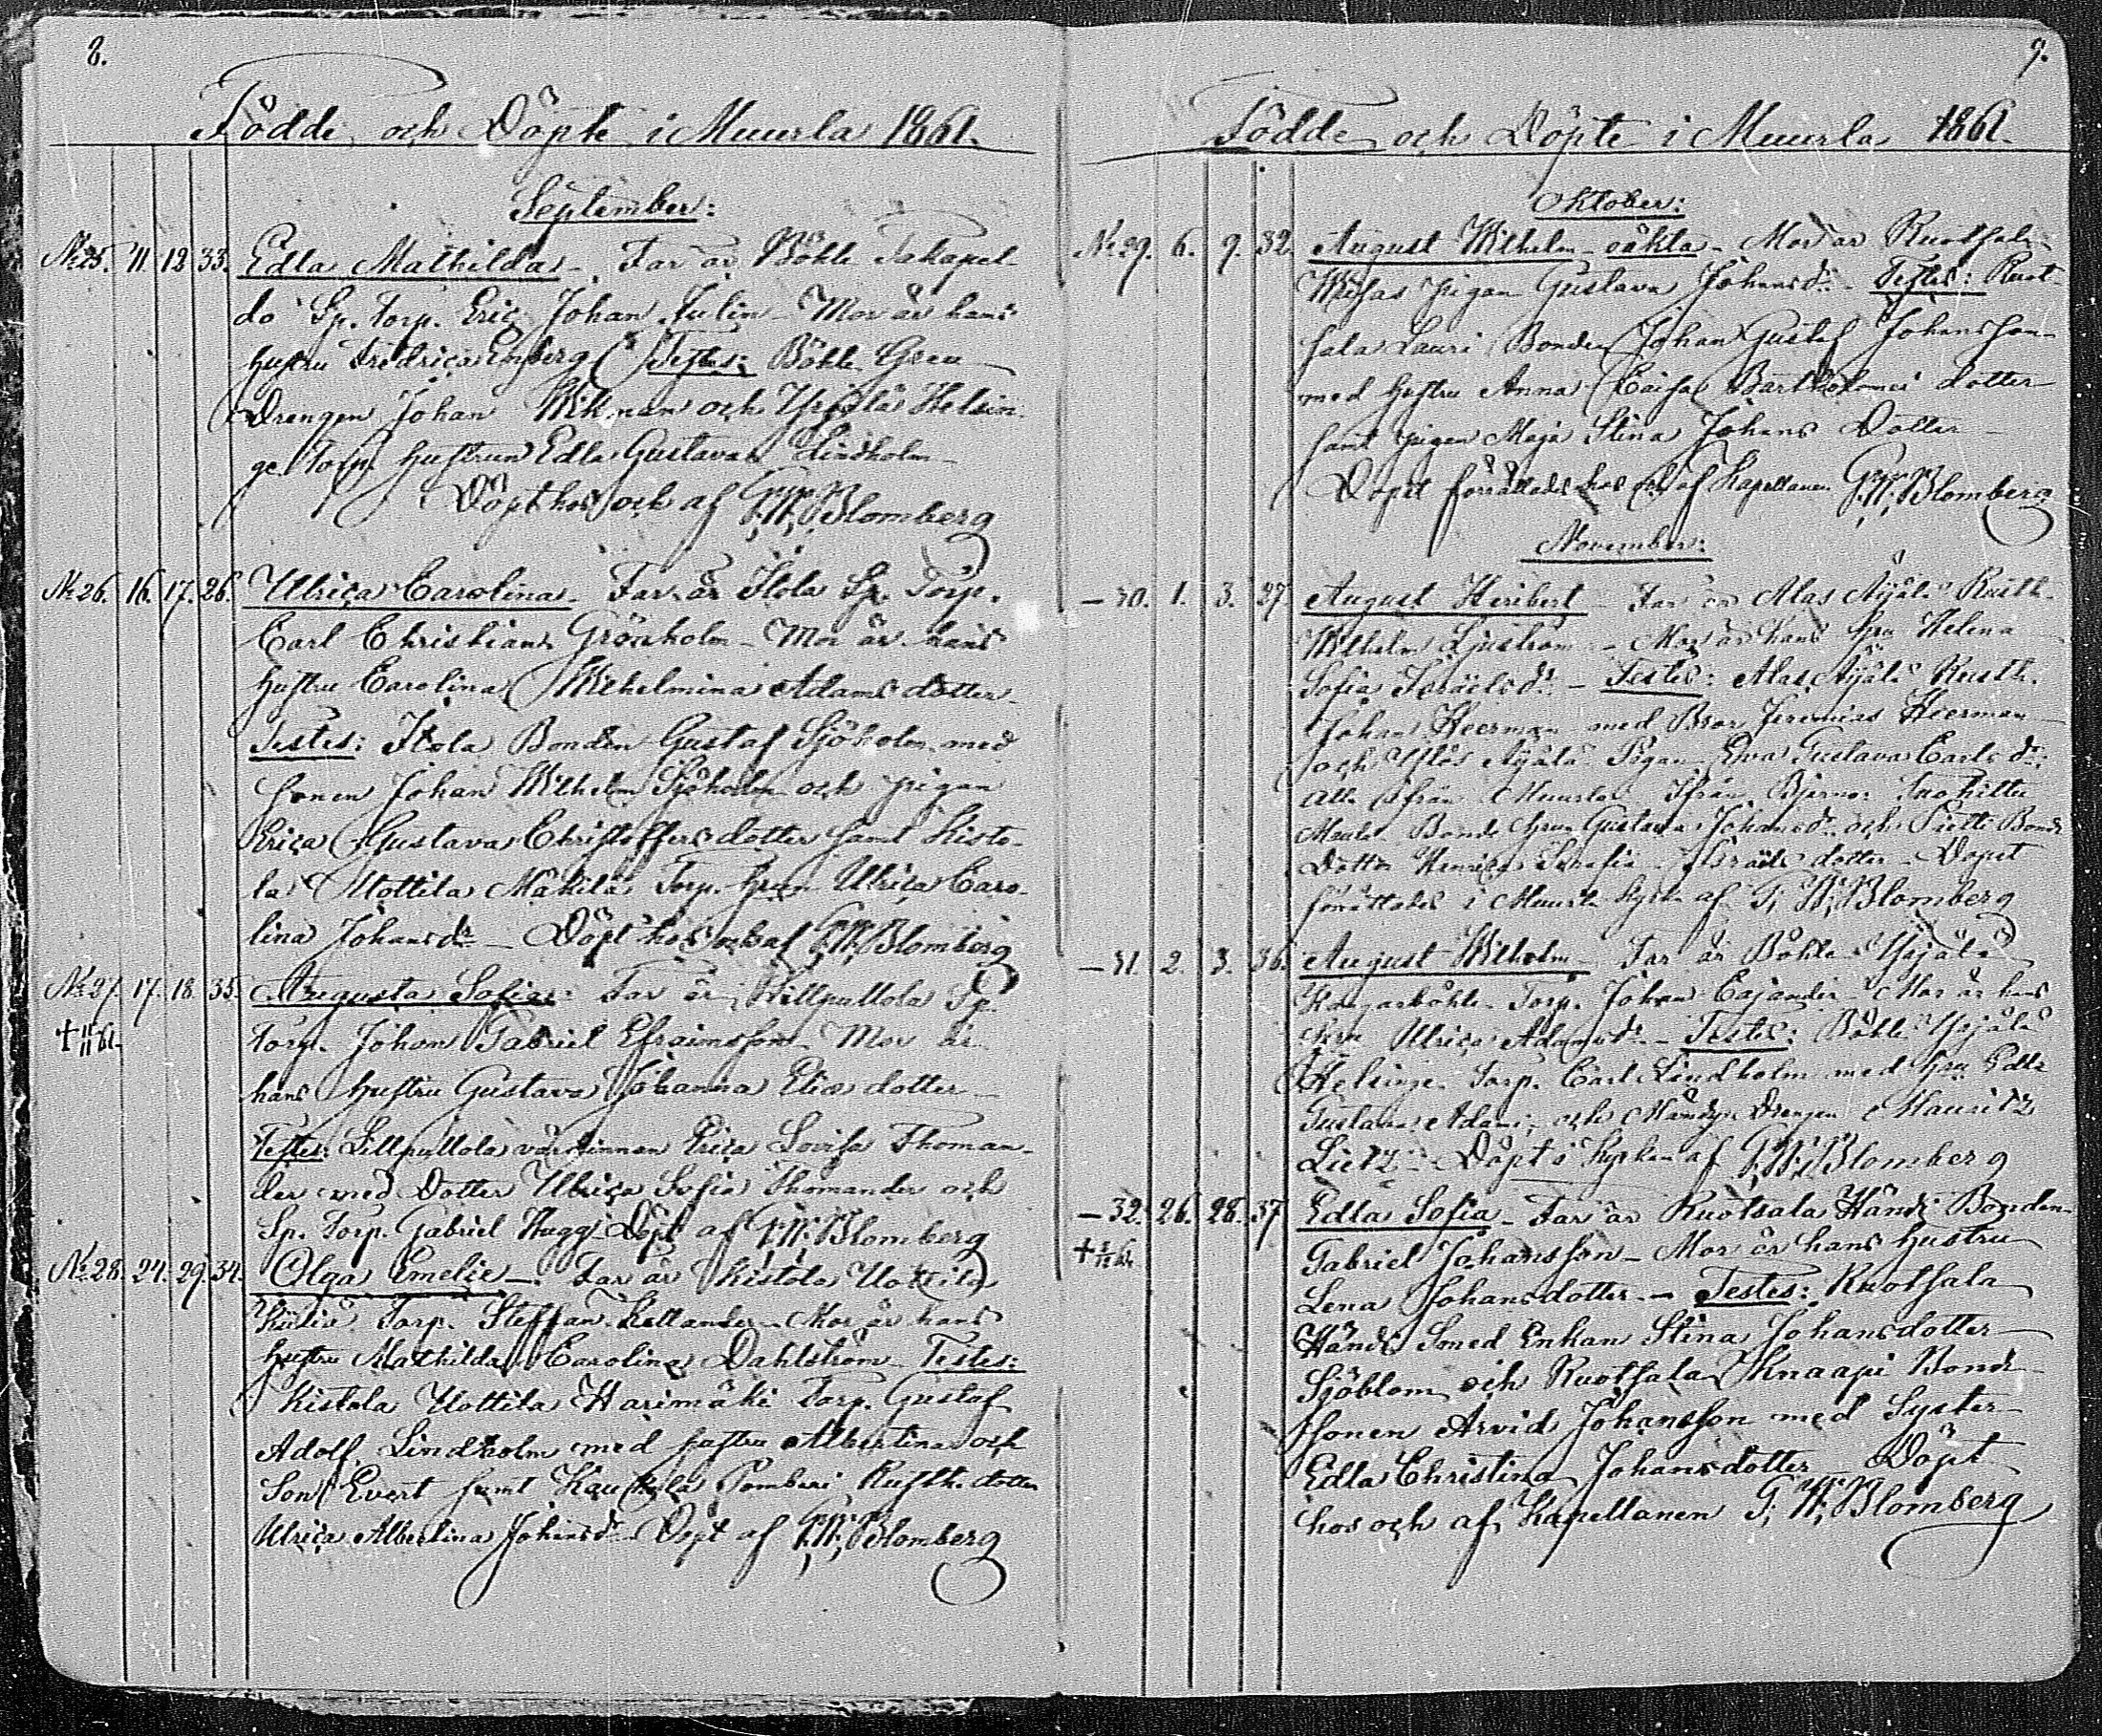 8.
Födde och Döpte i Muurla 1861.
September:
No 25. 11. 12 33. Edla Mathilda - Far är Böhle Takapel-
do Sp. Torp. Eric Johan Julin - Mor är hans
hustru Fredrica Enberg Testes: Böhle Gren
Drengen Johan Wikman och Yrjälä Helsin
ge Torp. hustrun Edla Gustava Lindholm -
Döpt hos och af G. W. Blomberg
No 26. 16. 17. 26. Ulrica Carolina - Far är Itola Sp. Torp.
Carl Christian Grönholm - Mor är hans
hustru Carolina Wilhelmina Adams dotter -
Testes: Itola Bonden Gustaf Sjöholm med
sonen Johan Wilhelm Sjöholm och pigan
Erica Gustava Christoffers dotter samt Kisto-
la Uottila Mäkilä Torp. hrun Ulrica Caro-
lina Johansdr - Döpt hos och af G. W. Blomberg
No 27. 17. 18. 35. Augusta Sofia: Far är Lillpullola Sp.
Torp. Johan Gabriel Efraimsson - Mor är
hans hustru Gustava Johanna Elias dotter -
Testes: Lillpullola värdinnan Erica Lovisa Thoman-
der med Dotter Ulrica Sofia Thomander och
Sp. Torp. Gabriel Hugg - Döpt af G. W. Blomberg
No 28. 24. 29. 34. Olga Emelie - Far är Kistola Uottila
Torp. Steffan Kellander - Mor är hans
hustru Mathilda Carolina Dahlström - Testes:
Kistola Uottila Harimäki Torp. Gustaf
Adolf Lindholm med hustru Albertina och
Son Evert samt Kaukola Pomberi Rusth. dotter
Ulrica Albertina Johansdr - Döpt af G. W. Blomberg
9.
Födde och Döpte i Muurla 1861.
Oktober:
No 29. 6. 9. 32. August Wilhelm - oäkta - Mor är Ruotsala
pigan Gustava Johansdr - Testes: Ruot-
sala Lauri Bonden Johan Gustaf Johansson
med hustru Anna Caisa Bartholomei dotter
samt pigan Maja Stina Johans Dotter -
Döpet förrättades hos och af Kapellanen G. W. Blomberg
November:
- 30. 1. 3. 27. August Heribert - Far är Alas Äijälä Rusth.
Wilhelm Sjöström - Mor är hans hru Helena
Sofia Israelsdr - Testes: Alas Äijälä Rusth.
Johan Heerman med Bror Jeremias Heerman
och Ylös Äijälä Pigan Eva Gustava Carlsdr;
alla ifrån Muurla. Ifrån Bjerno:
Bonde hrun Gustava Johansdr och Bonde
Dotter Henrica Serafia Israels dotter - Döpet
förrättades i Muurla Kyrka af G. W. Blomberg
- 31. 2. 3. 36. August Wilhelm - Far är Böhle Yrjälä
Torp. Johan Cajander - Mor är hans
hru Ulrica Adamsdr - Testes: Böhle Yrjälä
Helsinge Torp. Carl Lindholm med hru Edla
Gustava Adami, och Drengen Mauritz
Lietz - Döpt i Kyrkan af G. W. Blomberg
- 32. 26. 28. 37 Edla Sofia - Far är Ruotsala Händi Bonden
Gabriel Johansson - Mor är hans hustru
Lena Johansdotter - Testes: Ruotsala
Händi Smed Enkan Stina Johansdotter
Sjöblom och Ruotsala Knaapi Bonde
sonen Arvid Johansson med Syster
Edla Christina Johansdotter - Döpt
hos och af Kapellanen G. W. Blomberg